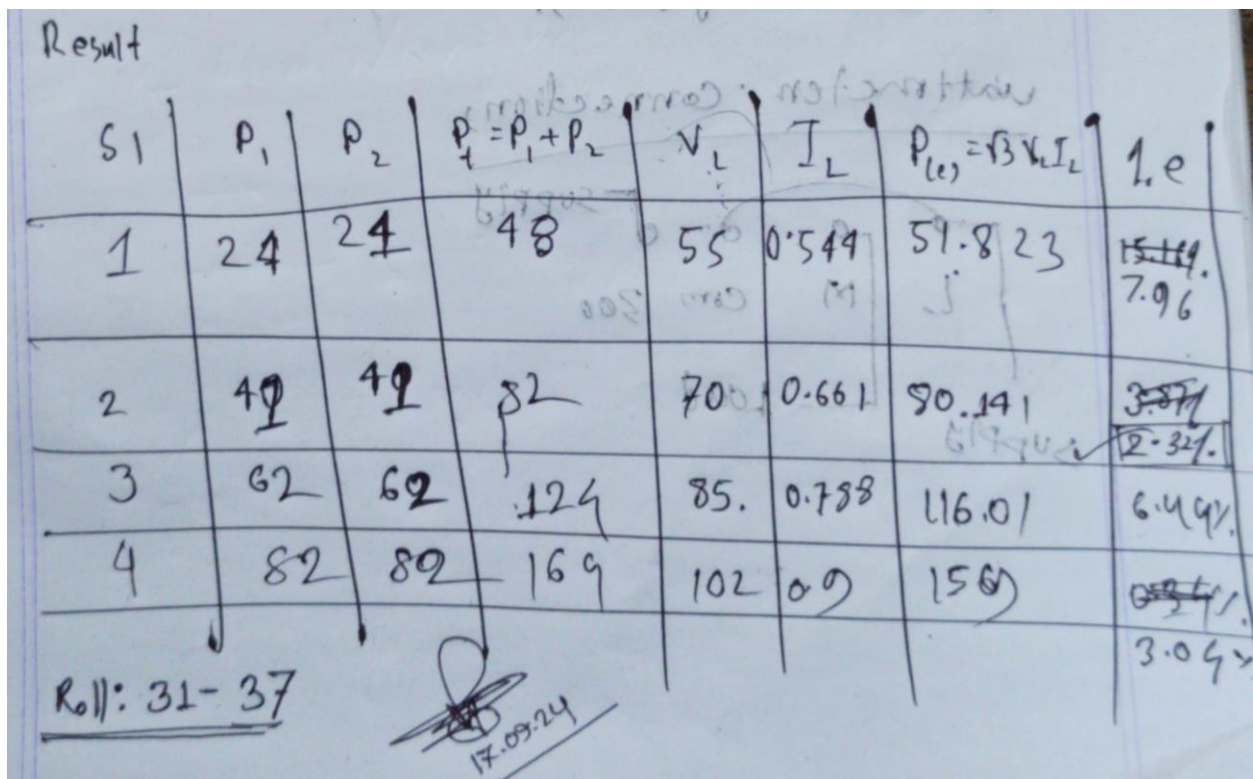 Result
Sl P₁ P₂ P_t = P₁ + P₂ V_L I_L P_(e) = √3 V_L I_L %.e
1 24 24 48 55 0.544 51.823 7.96
2 41 41 82 70 0.661 80.141 2.32%.
3 62 62 124 85. 0.788 116.01 6.44%.
4 82 82 164 102 0.9 159 3.04%
Roll: 31-37
17.09.24